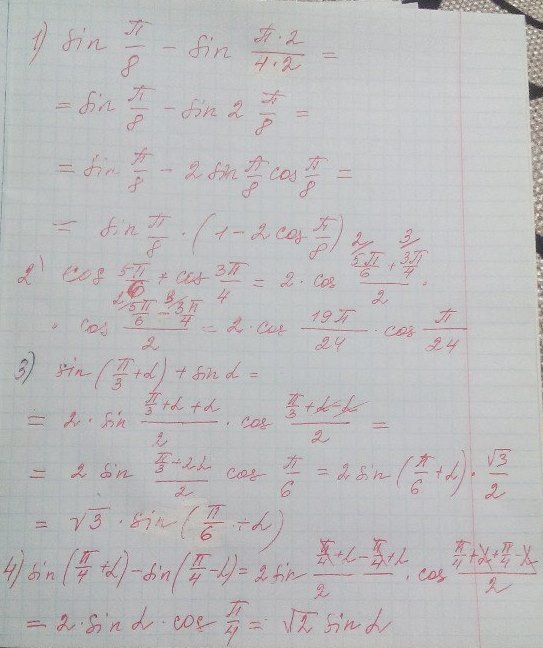 1) sin π/8 - sin π·2/4·2 =
= sin π/8 - sin 2 π/8 =
= sin π/8 - 2 sin π/8 cos π/8 =
= sin π/8 · (1 - 2 cos π/8)
2) cos 5π/6 + cos 3π/4 = 2 · cos (5π/6 + 3π/4)/2 ·
· cos (5π/6 - 3π/4)/2 = 2 · cos 19π/24 · cos π/24
3) sin (π/3 + α) + sin α =
= 2 · sin (π/3 + α + α)/2 · cos (π/3 + α - α)/2 =
= 2 sin (π/3 + 2α)/2 cos π/6 = 2 sin (π/6 + α) · √3/2
= √3 · sin (π/6 + α)
4) sin (π/4 + α) - sin (π/4 - α) = 2 sin (π/4 + α - π/4 + α)/2 · cos (π/4 + α + π/4 - α)/2
= 2 · sin α · cos π/4 = √2 sin α